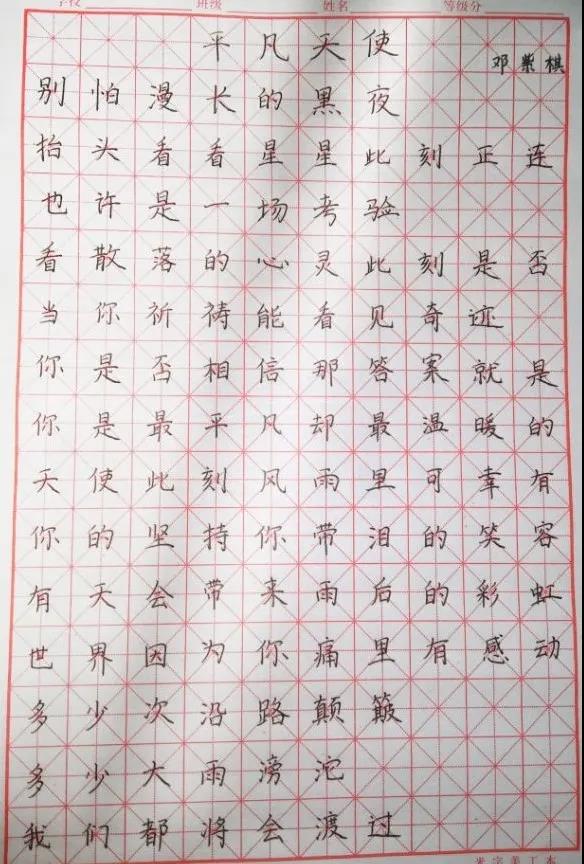 学校 班级 姓名 等级分
平凡天使
邓紫棋
别怕漫长的黑夜
抬头看看星星此刻正连
也许是一场考验
看散落的心灵此刻是否
当你祈祷能看见奇迹
你是否相信那答案就是
你是最平凡却最温暖的
天使此刻风雨里可幸有
你的坚持你带泪的笑容
有天会带来雨后的彩虹
世界因为你痛里有感动
多少次沿路颠簸
多少大雨滂沱
我们都将会渡过